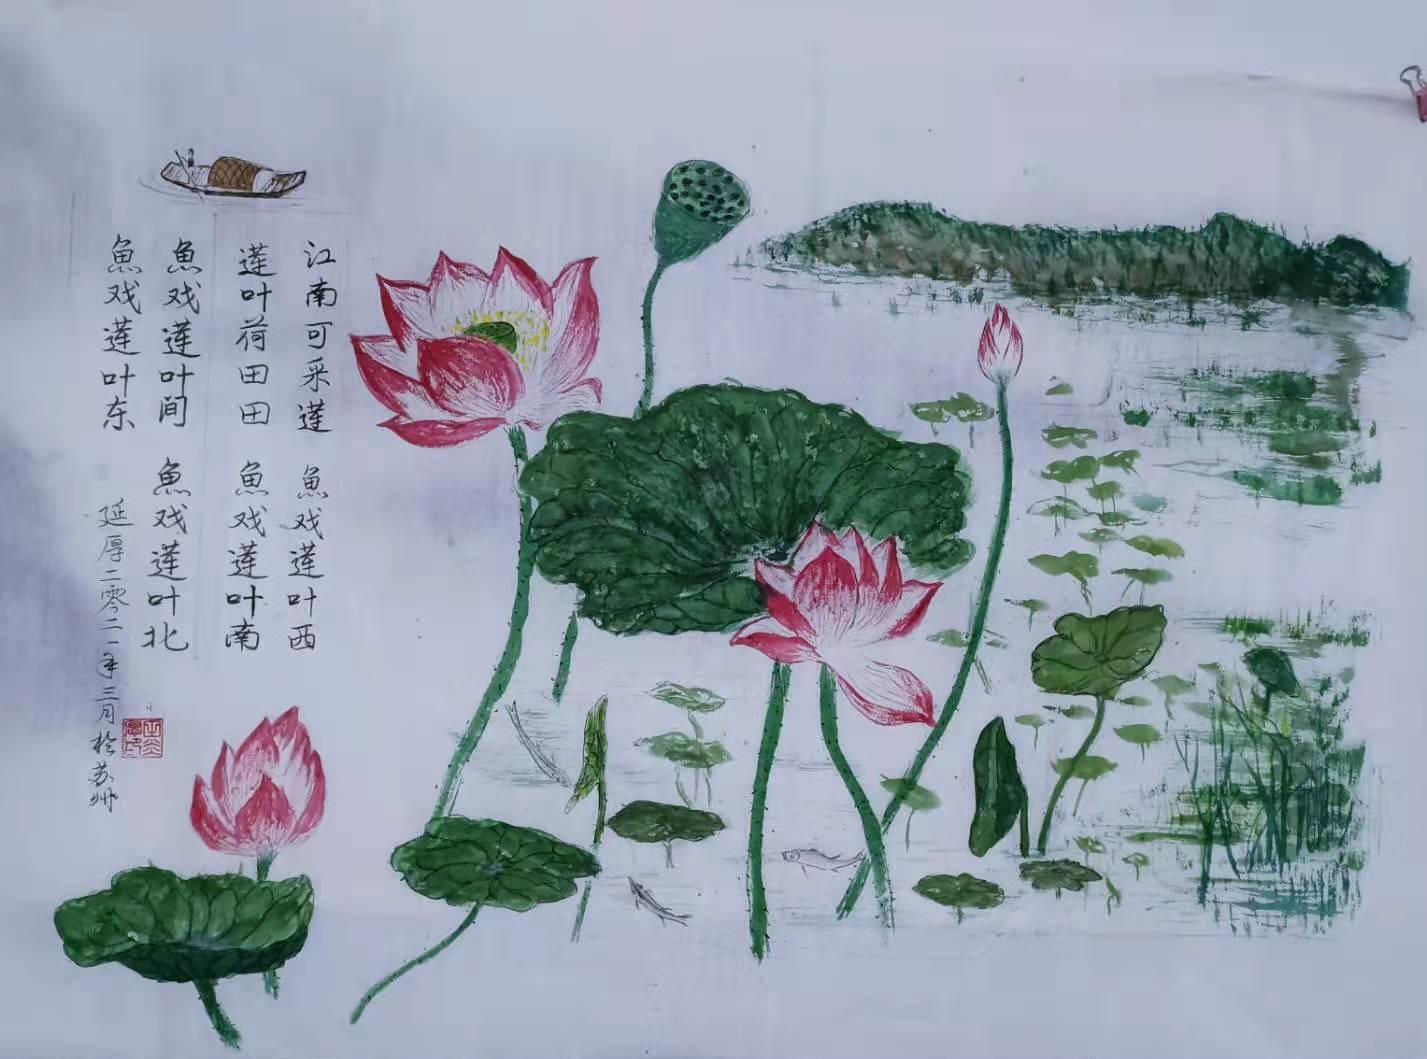 江南可采莲
莲叶荷田田
魚戏莲叶间
魚戏莲叶东
魚戏莲叶西
魚戏莲叶南
魚戏莲叶北
延厚二零二一年三月於苏州